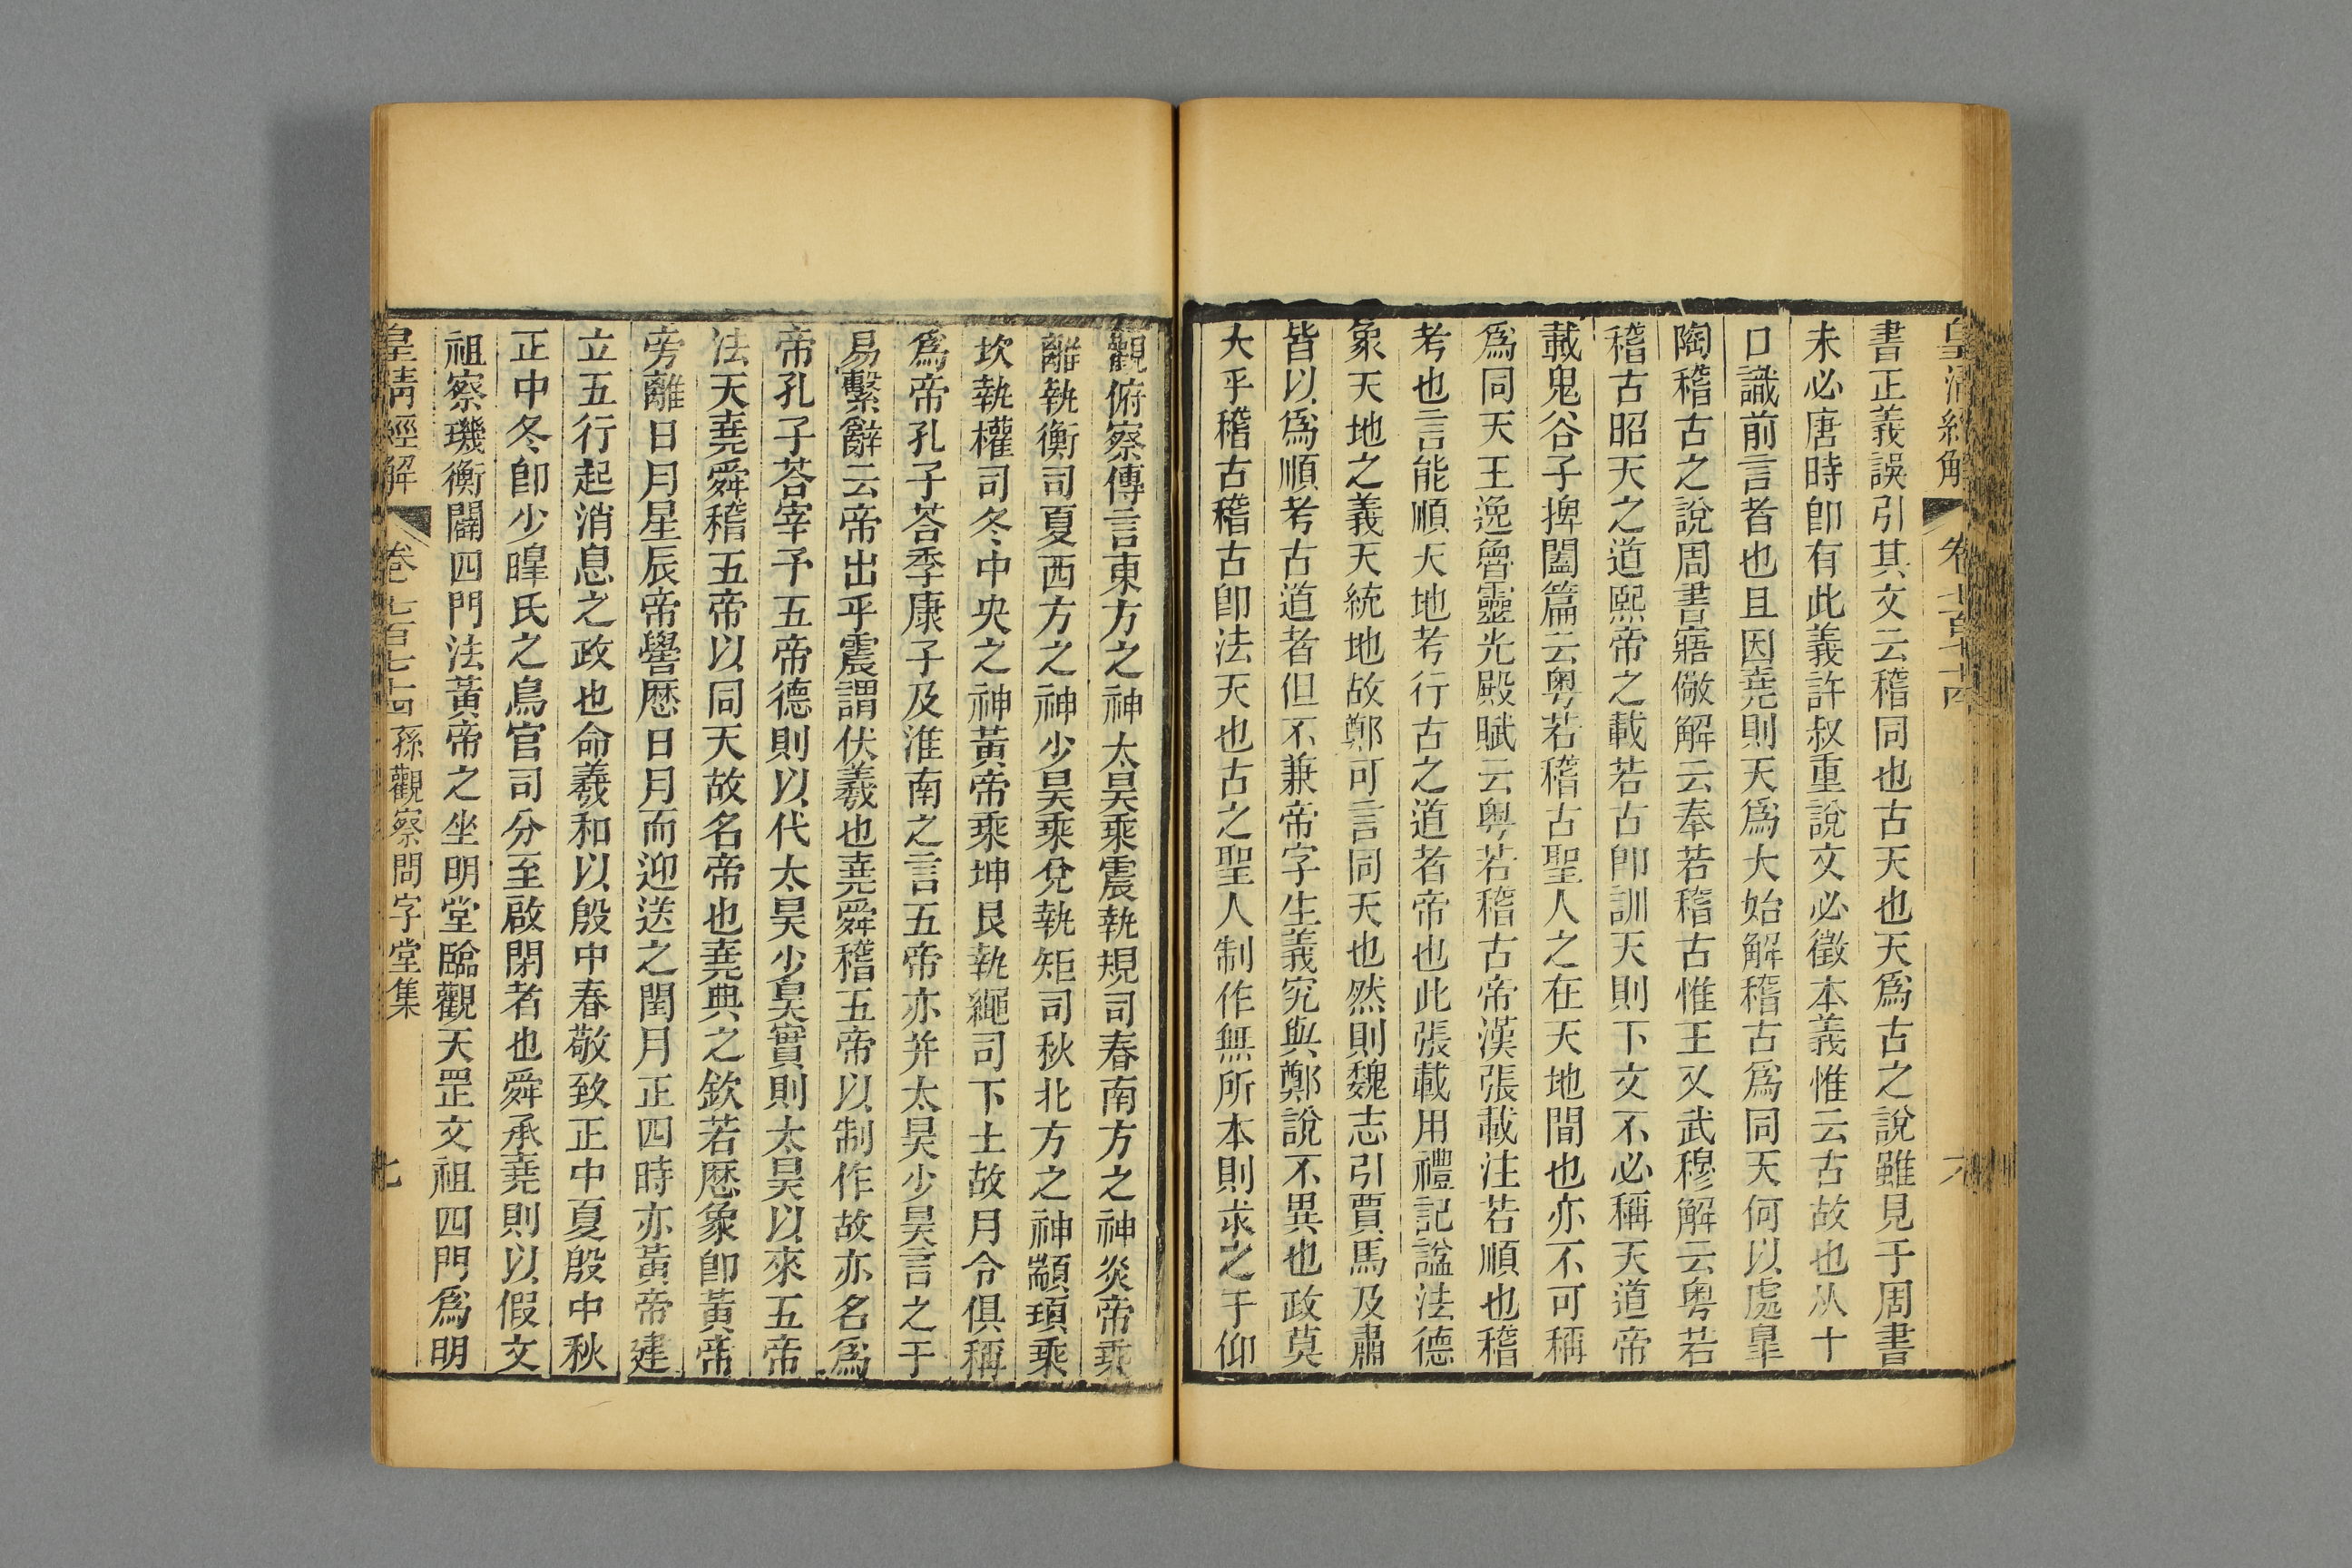 皇清經解
卷七百七十四
六
書正義誤引其文云稽同也古天也天爲古之說雖見于周書
未必唐時卽有此義許叔重說文必徵本義惟云古故也从十
口識前言者也且因堯則天爲大始解稽古爲同天何以處皐
陶稽古之說周書寤儆解云奉若稽古惟王又武穆解云粵若
稽古昭天之道熙帝之載若古卽訓天則下文不必稱天道帝
載鬼谷子捭闔篇云粵若稽古聖人之在天地間也亦不可稱
爲同天王逸魯靈光殿賦云粵若稽古帝漢張載注若順也稽
考也言能順天地考行古之道者帝也此張載用禮記諡法德
象天地之義天統地故鄭可言同天也然則魏志引賈馬及肅
皆以爲順考古道者但不兼帝字生義究與鄭說不異也政莫
大乎稽古稽古卽法天也古之聖人制作無所本則求之于仰
觀俯察傳言東方之神太昊乘震執規司春南方之神炎帝乘
離執衡司夏西方之神少昊乘兌執矩司秋北方之神顓頊乘
坎執權司冬中央之神黃帝乘坤艮執繩司下土故月令俱稱
爲帝孔子荅季康子及淮南之言五帝亦并太昊少昊言之于
易繫辭云帝出乎震謂伏羲也堯舜稽五帝以制作故亦名爲
帝孔子荅宰予五帝德則以代太昊少昊實則太昊以來五帝
法天堯舜稽五帝以同天故名帝也堯典之欽若厯象卽黃帝
旁離日月星辰帝嚳厯日月而迎送之閏月正四時亦黃帝建
立五行起消息之政也命羲和以殷中春敬致正中夏殷中秋
正中冬卽少暤氏之鳥官司分至啟閉者也舜承堯則以假文
祖察璣衡闢四門法黃帝之坐明堂臨觀天罡文祖四門爲明
皇清經解
卷七百七十四
孫觀察問字堂集
七